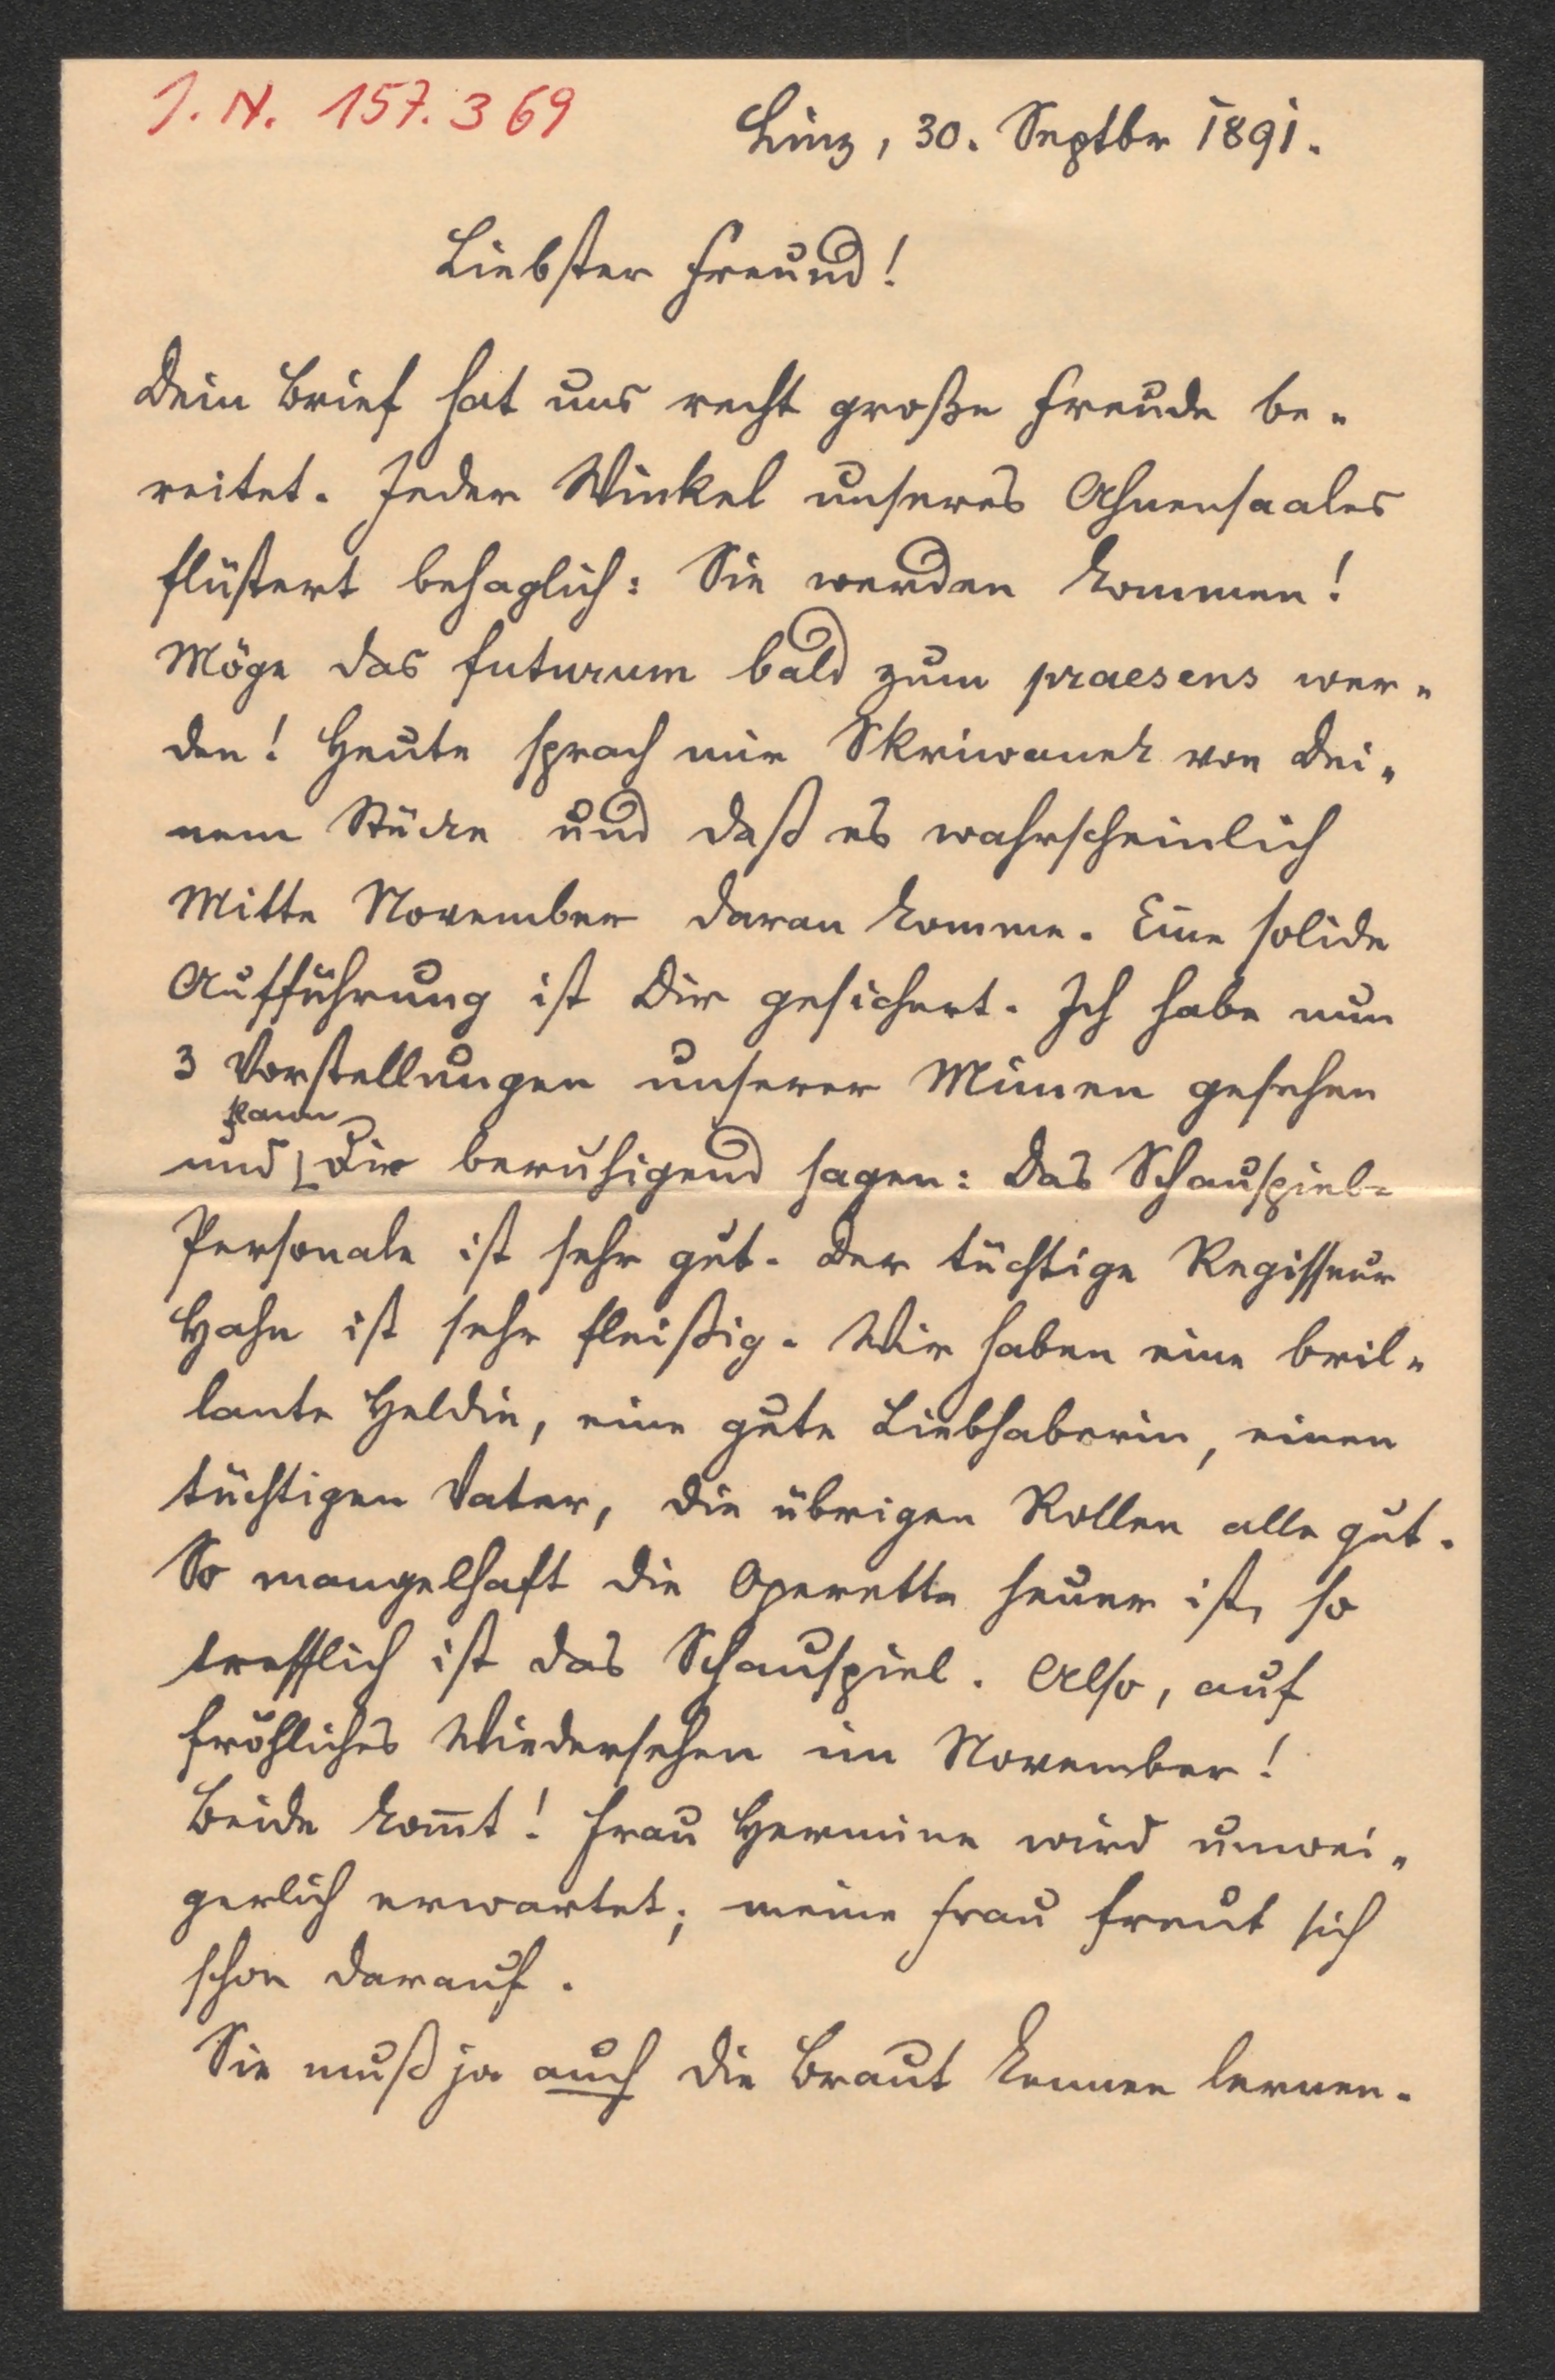 J. N. 157.369
Linz, 30. Septbr 1891.
Liebster Freund!
Dein Brief hat uns recht große Freude be-
reitet. Jeder Winkel unseres Ahnensaales
flüstert behaglich: Sie werden kommen!
Möge das futurum bald zum praesens wer-
den! Heute sprach mir Skriwanek von Dei-
nem Stücke und daß es wahrscheinlich
Mitte November daran komme. Eine solide
Aufführung ist Dir gesichert. Ich habe nun
3 Vorstellungen unserer Mimen gesehen
kann
und Dir beruhigend sagen: Das Schauspiel-
Personale ist sehr gut. Der tüchtige Regisseur
Hahn ist sehr fleißig. Wir haben eine bril-
lante Heldin, eine gute Liebhaberin, einen
tüchtigen Vater, die übrigen Rollen alle gut.
So mangelhaft die Operette heuer ist, so
trefflich ist das Schauspiel. Also, auf
fröhliches Wiedersehen im November!
Beide kom̅t! Frau Hermine wird unwei-
gerlich erwartet; meine Frau freut sich
schon darauf.
Sie muß ja auch die Braut kennen lernen.